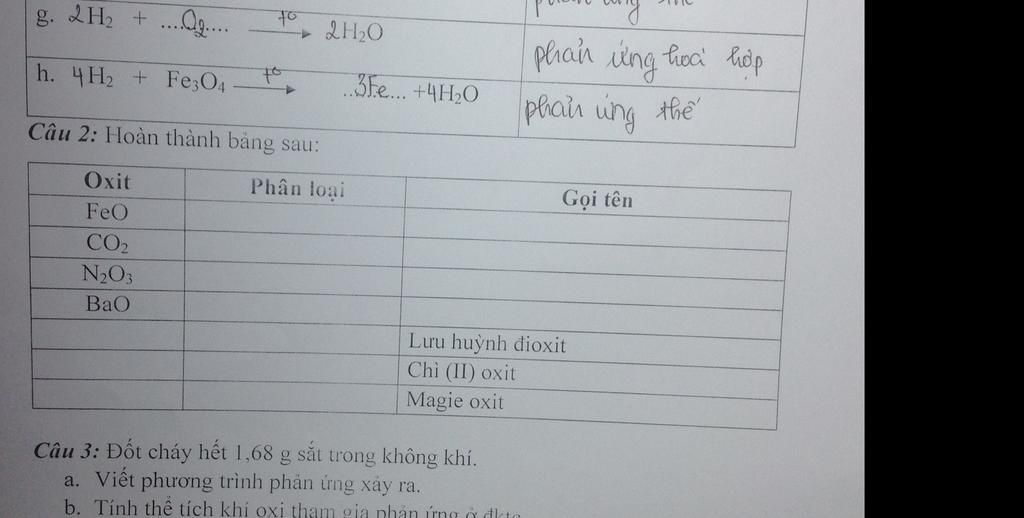 g. 2H₂ + ....O₂.... t° → 2H₂O
phản ứng hoá hợp
h. 4H₂ + Fe₃O₄ t° → ..3Fe... +4H₂O
phản ứng thế
Câu 2: Hoàn thành bảng sau:
Oxit Phân loại Gọi tên
FeO
CO₂
N₂O₃
BaO
Lưu huỳnh đioxit
Chì (II) oxit
Magie oxit
Câu 3: Đốt cháy hết 1,68 g sắt trong không khí.
a. Viết phương trình phản ứng xảy ra.
b. Tính thể tích khí oxi tham gia phản ứng ở đktc